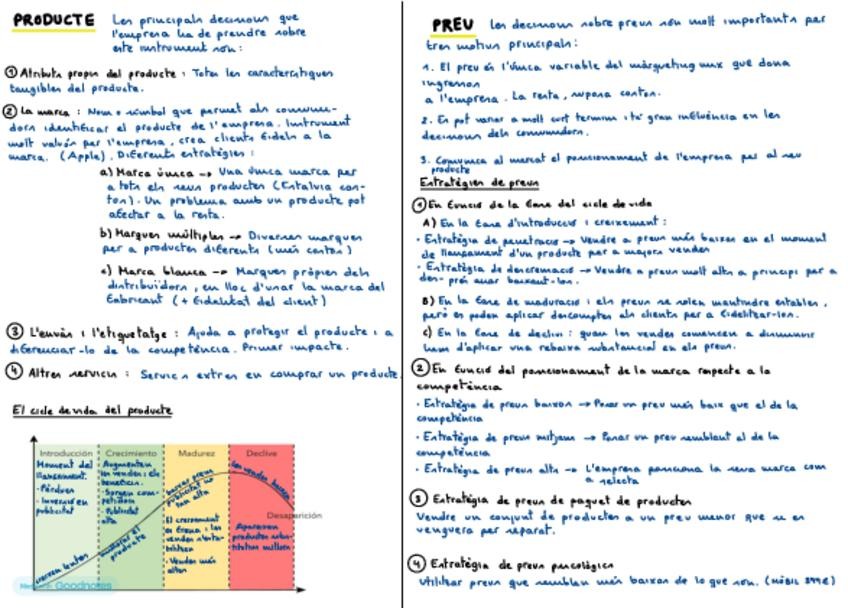 PRODUCTE Les principals decisions que
l'empresa ha de prendre sobre
este instrument són:
① Atributs propis del producte: Totes les característiques
tangibles del producte.
② La marca: Nom o símbol que permet als consumi-
dors identificar el producte de l'empresa. Instrument
molt valuós per l'empresa, crea clients fidels a la
marca. (Apple). Diferents estratègies:
a) Marca única → Una única marca per
a tots els seus productes (Estalvia cos-
tos). Un problema amb un producte pot
afectar a la resta.
b) Marques múltiples → Diverses marques
per a productes diferents (més costos)
c) Marca blanca → Marques pròpies dels
distribuïdors, en lloc d'usar la marca del
fabricant (+ fidelitat del client)
③ L'envàs i l'etiquetatge: Ajuda a protegir el producte i a
diferenciar-lo de la competència. Primer impacte.
④ Altres servicis: Servicis extres en comprar un producte.
El cicle de vida del producte
Introducción
Moment del
llançament.
- Pèrdues
- Inversió en
publicitat
creixen lentes
Crecimiento
Augmenten
les vendes i els
beneficis.
- Sorgeix com-
petidors
- Publicitat
alta
millorar el
producte
Madurez
baixar preus
publicitat no
tan alta
El creixement
de frena i les
vendes s'esta-
bilitzen
- Vendes més
altes
Declive
les vendes baixen
Apareixen
productes subs-
titutius millors
Desaparición
Goodnotes
PREU Les decisions sobre preus són molt importants per
tres motius principals:
1. El preu és l'única variable del màrqueting mix que dona
ingressos
a l'empresa. La resta, suposa costos.
2. Es pot variar a molt curt termini i té gran influència en les
decisions dels consumidors.
3. Comunica al mercat el posicionament de l'empresa per al seu
producte
Estratègies de preus
① En funció de la fase del cicle de vida
A) En la fase d'introducció i creixement:
· Estratègia de penetració → Vendre a preus més baixos en el moment
de llançament d'un producte per a majors vendes
· Estratègia de descremació → Vendre a preus molt alts a principi per a
des- pré anar baixant-los.
B) En la fase de maduració: els preus se solen mantindre estables,
però es poden aplicar descomptes als clients per a fidelitzar-los.
C) En la fase de declivi: quan les vendes comencen a disminuir
hem d'aplicar una rebaixa substancial en els preus.
② En funció del posicionament de la marca respecte a la
competència
· Estratègia de preus baixos → Posar un preu més baix que el de la
competència
· Estratègia de preus mitjans → Posar un preu semblant al de la
competència
· Estratègia de preus alts → L'empresa posiciona la seva marca com
a selecta
③ Estratègia de preus de paquet de productes
Vendre un conjunt de productes a un preu menor que si es
venguera per separat.
④ Estratègia de preus psicològics
Utilitzar preus que semblen més baixos de lo que són. (MÒBIL 399€)